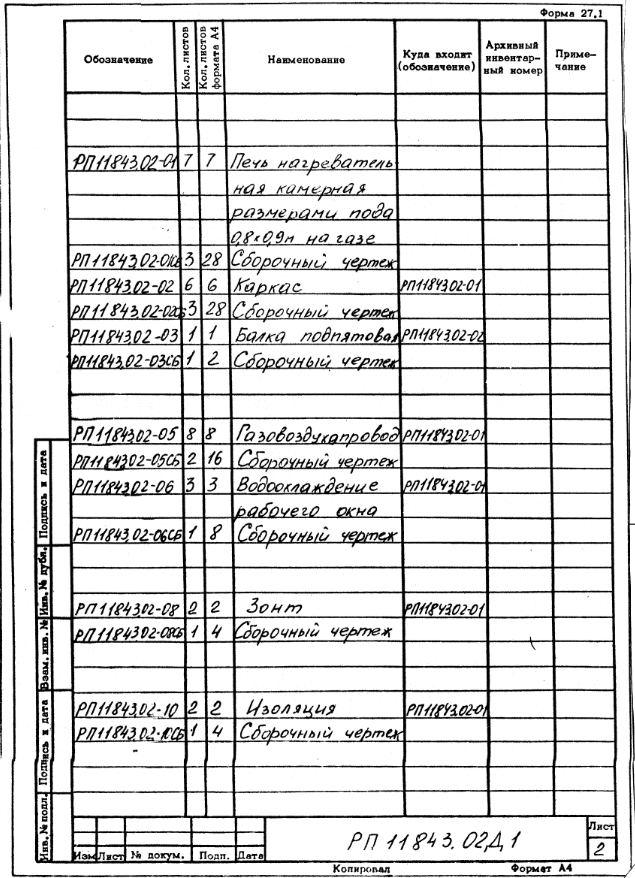 Форма 27.1
Обозначение Кол. листов Кол. листов формата А4 Наименование Куда входит (обозначение) Архивный инвентар- ный номер Приме- чание
РП11843.02-01 7 7 Печь нагреватель
ная камерная
размерами пода
0,8×0,9м на газе
РП11843.02-01СБ 3 28 Сборочный чертеж
РП11843.02-02 6 6 Каркас РП11843.02-01
РП11843.02-02СБ 3 28 Сборочный чертеж
РП11843.02-03 1 1 Балка подпятовая РП11843.02-02
РП11843.02-03СБ 1 2 Сборочный чертеж
РП11843.02-05 8 8 Газовоздухапровод РП11843.02-01
РП11843.02-05СБ 2 16 Сборочный чертеж
РП11843.02-06 3 3 Водоохлаждение РП11843.02-01
рабочего окна
РП11843.02-06СБ 1 8 Сборочный чертеж
РП11843.02-08 2 2 Зонт РП11843.02-01
РП11843.02-08СБ 1 4 Сборочный чертеж
РП11843.02-10 2 2 Изоляция РП11843.02-01
РП11843.02-10СБ 1 4 Сборочный чертеж
Подпись и дата
Инв. № дубл.
Взам. инв. №
Подпись и дата
Инв. № подл.
РП 11843.02Д1
Лист
2
Изм Лист № докум. Подп. Дата
Копировал Формат А4